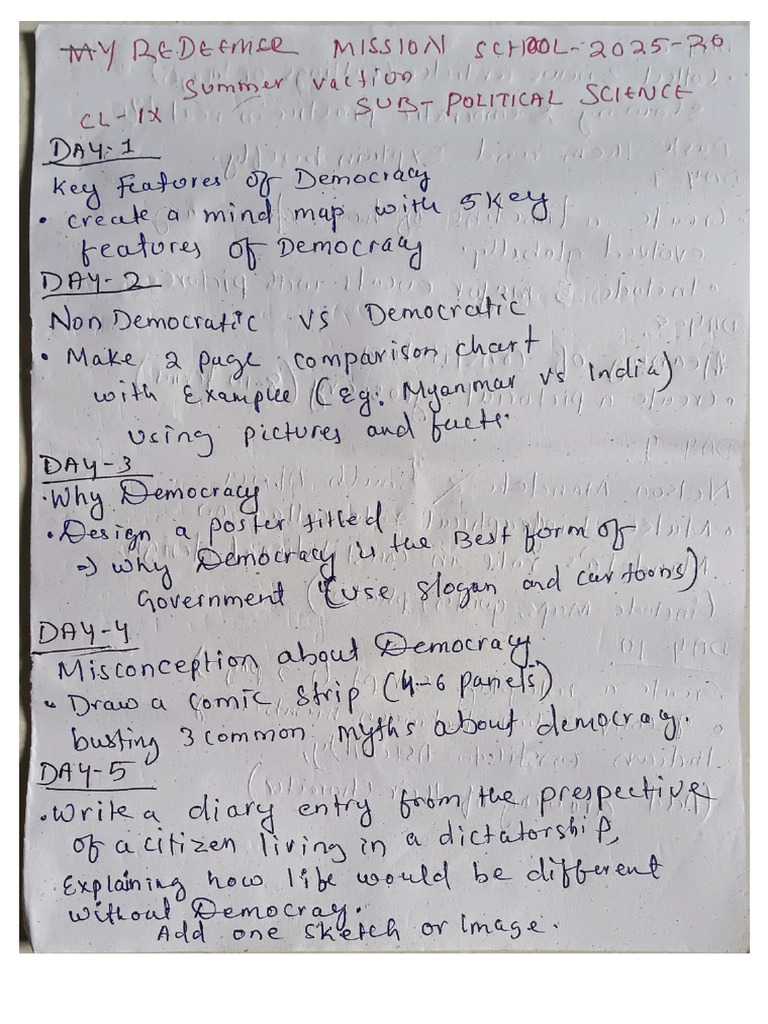 MY REDEEMER MISSION SCHOOL-2025-26
Summer Vaction
CL-IX SUB- POLITICAL SCIENCE
DAY-1
Key Features Of Democracy
• Create a mind map with 5 Key
features of Democraay
DAY-2
Non Democratic VS Democratic
• Make 2 page comparison chart
with Example (Eg: Myanmar vs India)
using pictures and facts.
DAY-3
• Why Democracy
• Design a poster titled
⇒ Why Democracy is the Best form of
Government (use slogan and cartoons)
DAY-4
Misconception about Democracy.
• Draw a comic strip (4-6 panels)
busting 3 common myths about democracy.
DAY-5
• Write a diary entry from the prespective
of a citizen living in a dictatorship,
Explaining how life would be different
without Democray.
Add one sketch or Image.